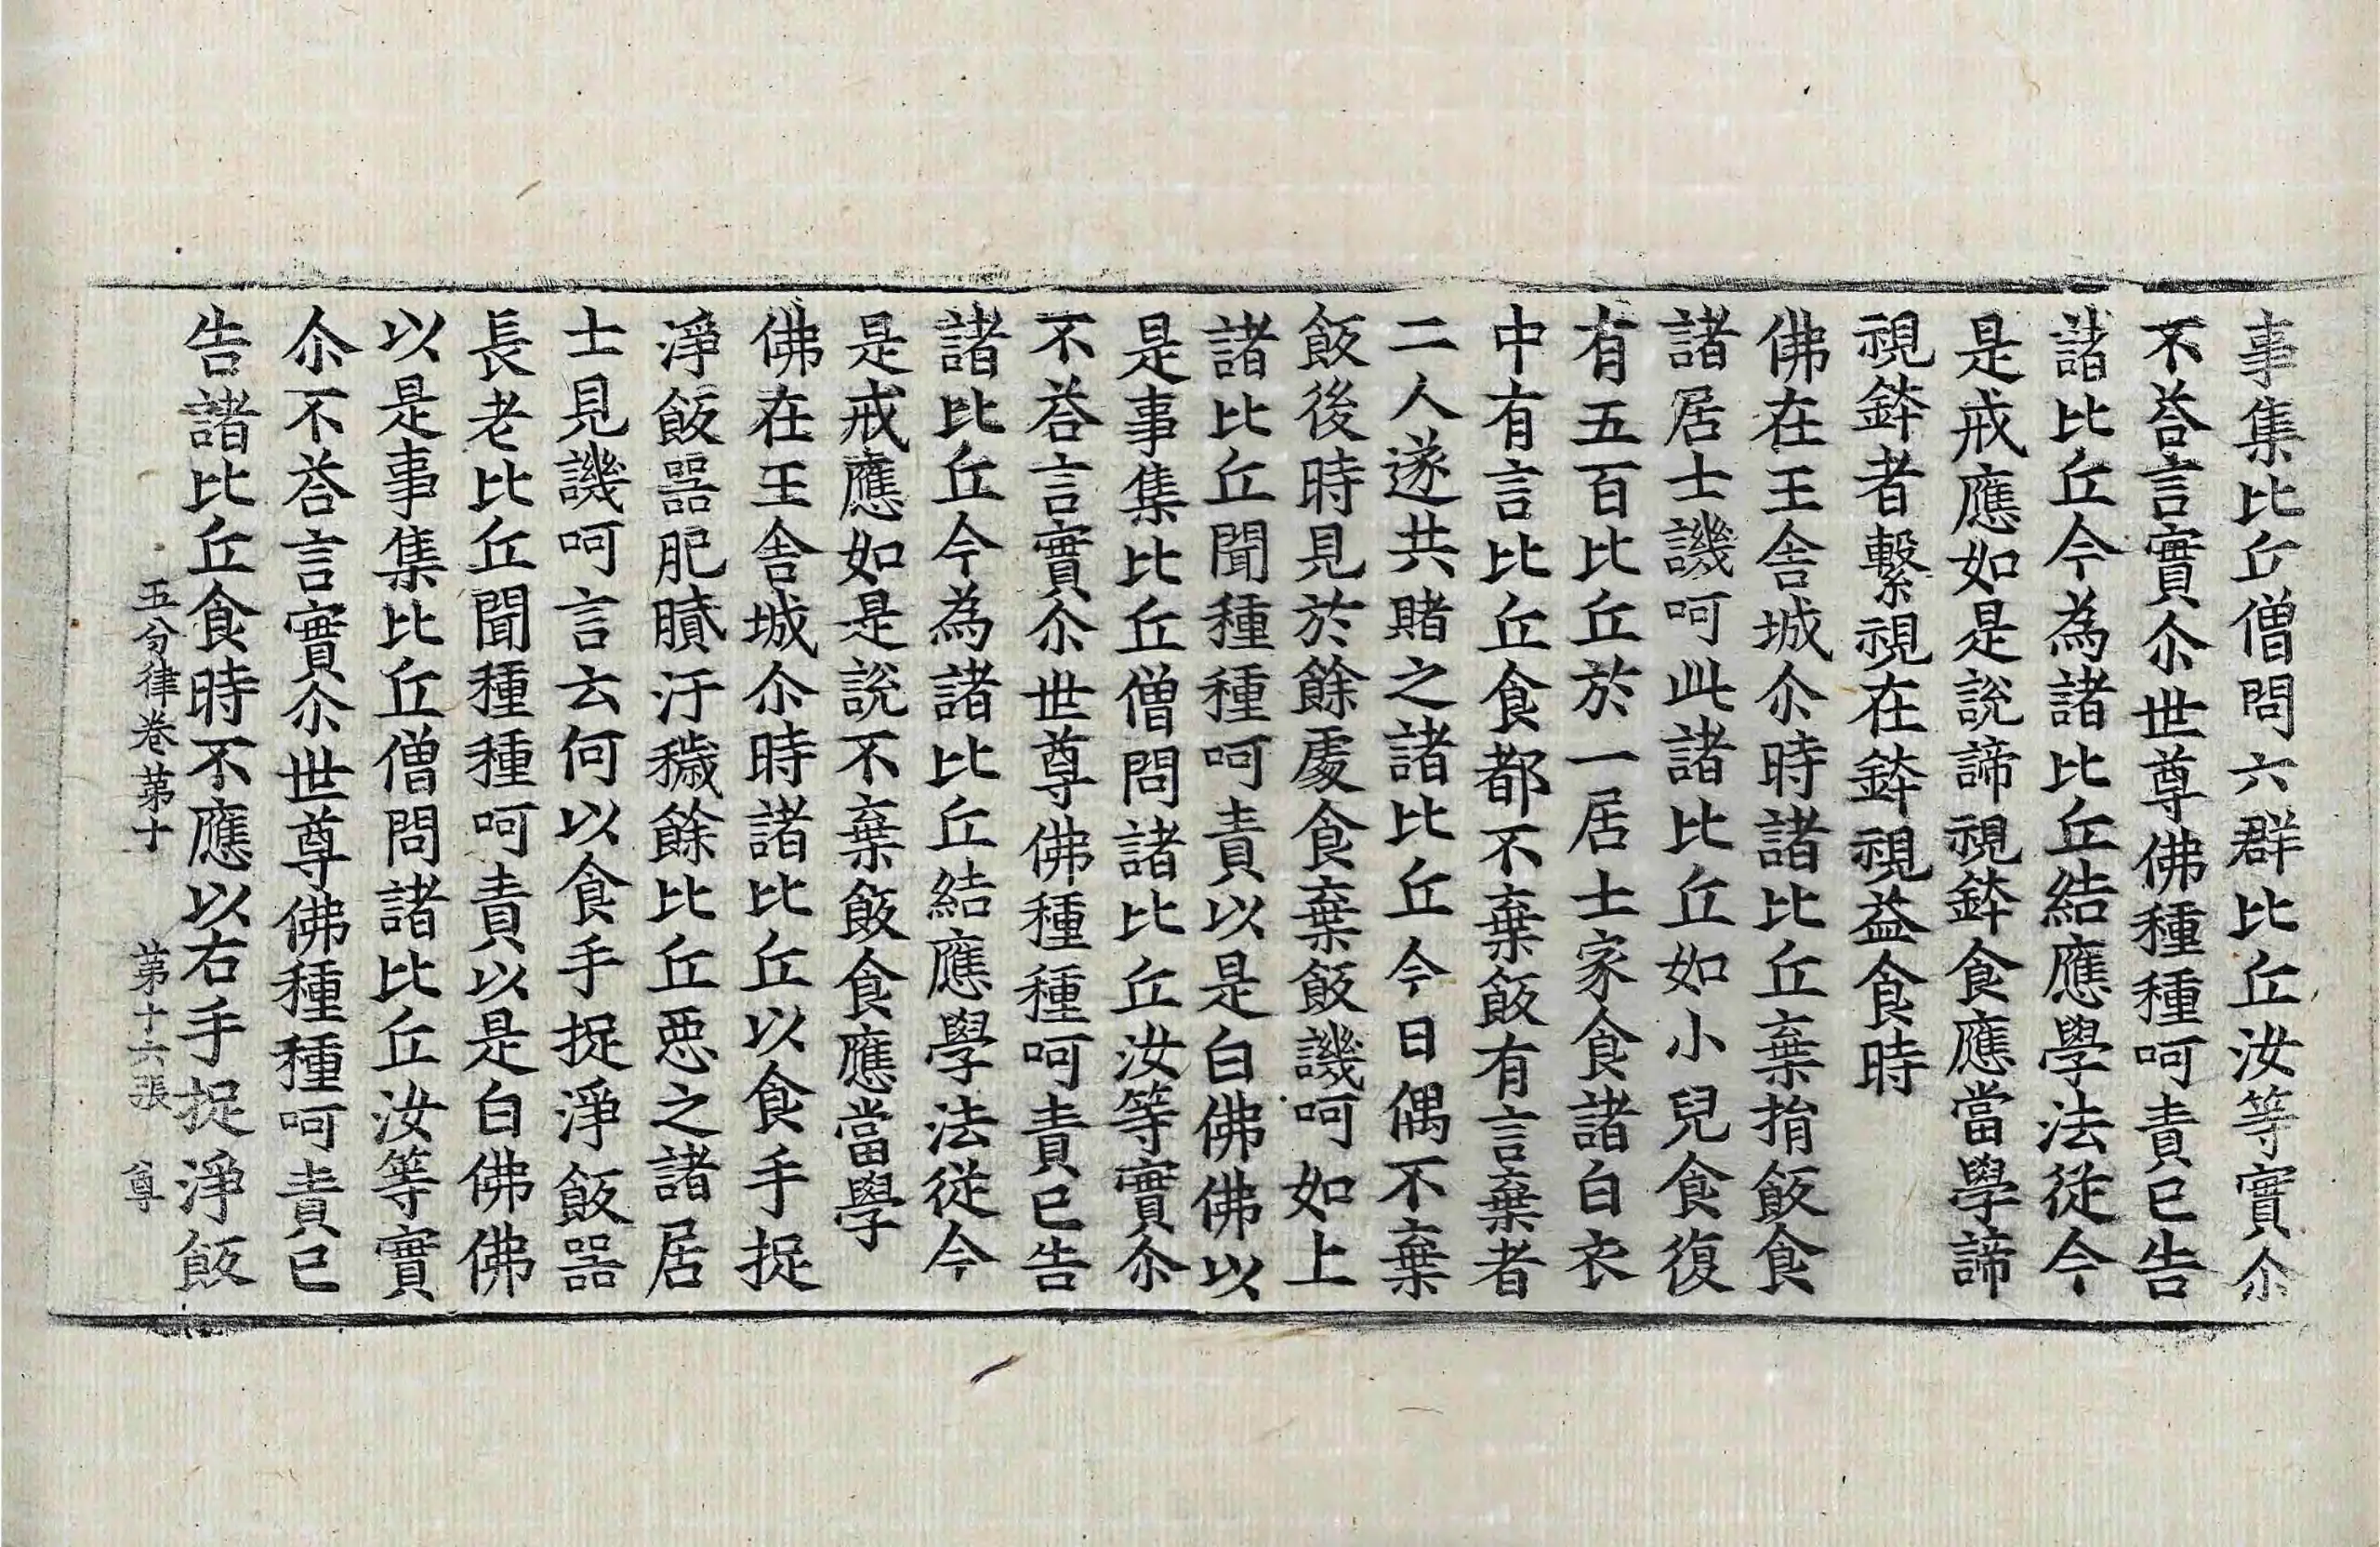 事集比丘僧問六群比丘汝等實尒
不荅言實尒世尊佛種種呵責已告
諸比丘今為諸比丘結應學法從今
是戒應如是說諦視鉢食應當學諦
視鉢者繫視在鉢視益食時
佛在王舍城尒時諸比丘棄揩飯食
諸居士譏呵此諸比丘如小兒食復
有五百比丘於一居士家食諸白衣
中有言比丘食都不棄飯有言棄者
二人遂共賭之諸比丘今日偶不棄
飯後時見於餘處食棄飯譏呵如上
諸比丘聞種種呵責以是白佛佛以
是事集比丘僧問諸比丘汝等實尒
不荅言實尒世尊佛種種呵責已告
諸比丘今為諸比丘結應學法從今
是戒應如是說不棄飯食應當學
佛在王舍城尒時諸比丘以食手捉
淨飯器肥膩汙穢餘比丘惡之諸居
士見譏呵言云何以食手捉淨飯器
長老比丘聞種種呵責以是白佛佛
以是事集比丘僧問諸比丘汝等實
尒不荅言實尒世尊佛種種呵責已
告諸比丘食時不應以右手捉淨飯
五分律卷第十 第十六張 尊